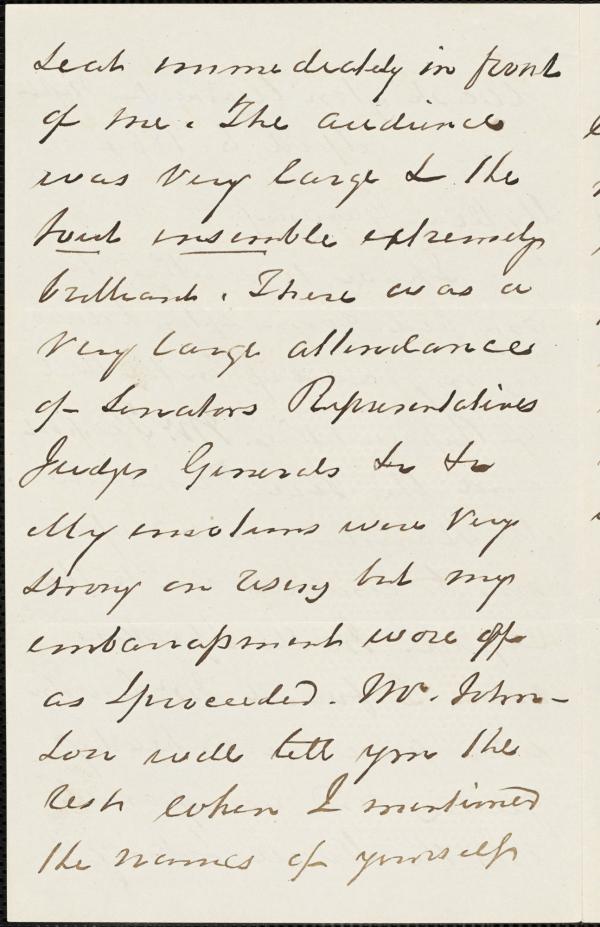 seat immediately in front
of me. The audience
was very large & the
tout ensemble extremely
brilliant. There was a
very large attendance
of Senators Representatives
Judges Generals &c &c
My emotions were very
strong on rising but my
embarrassment wore off
as I proceeded. Mr. John-
son will tell you the
rest when I mentioned
the names of yourself